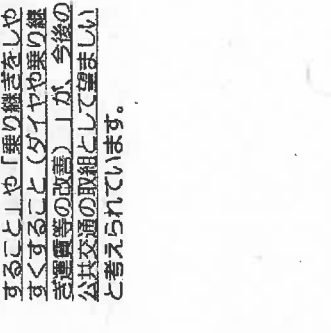 すること」や「乗り継ぎをしや
すくすること（ダイヤや乗り継
ぎ運賃等の改善）」が、今後の
公共交通の取組として望ましい
と考えられています。